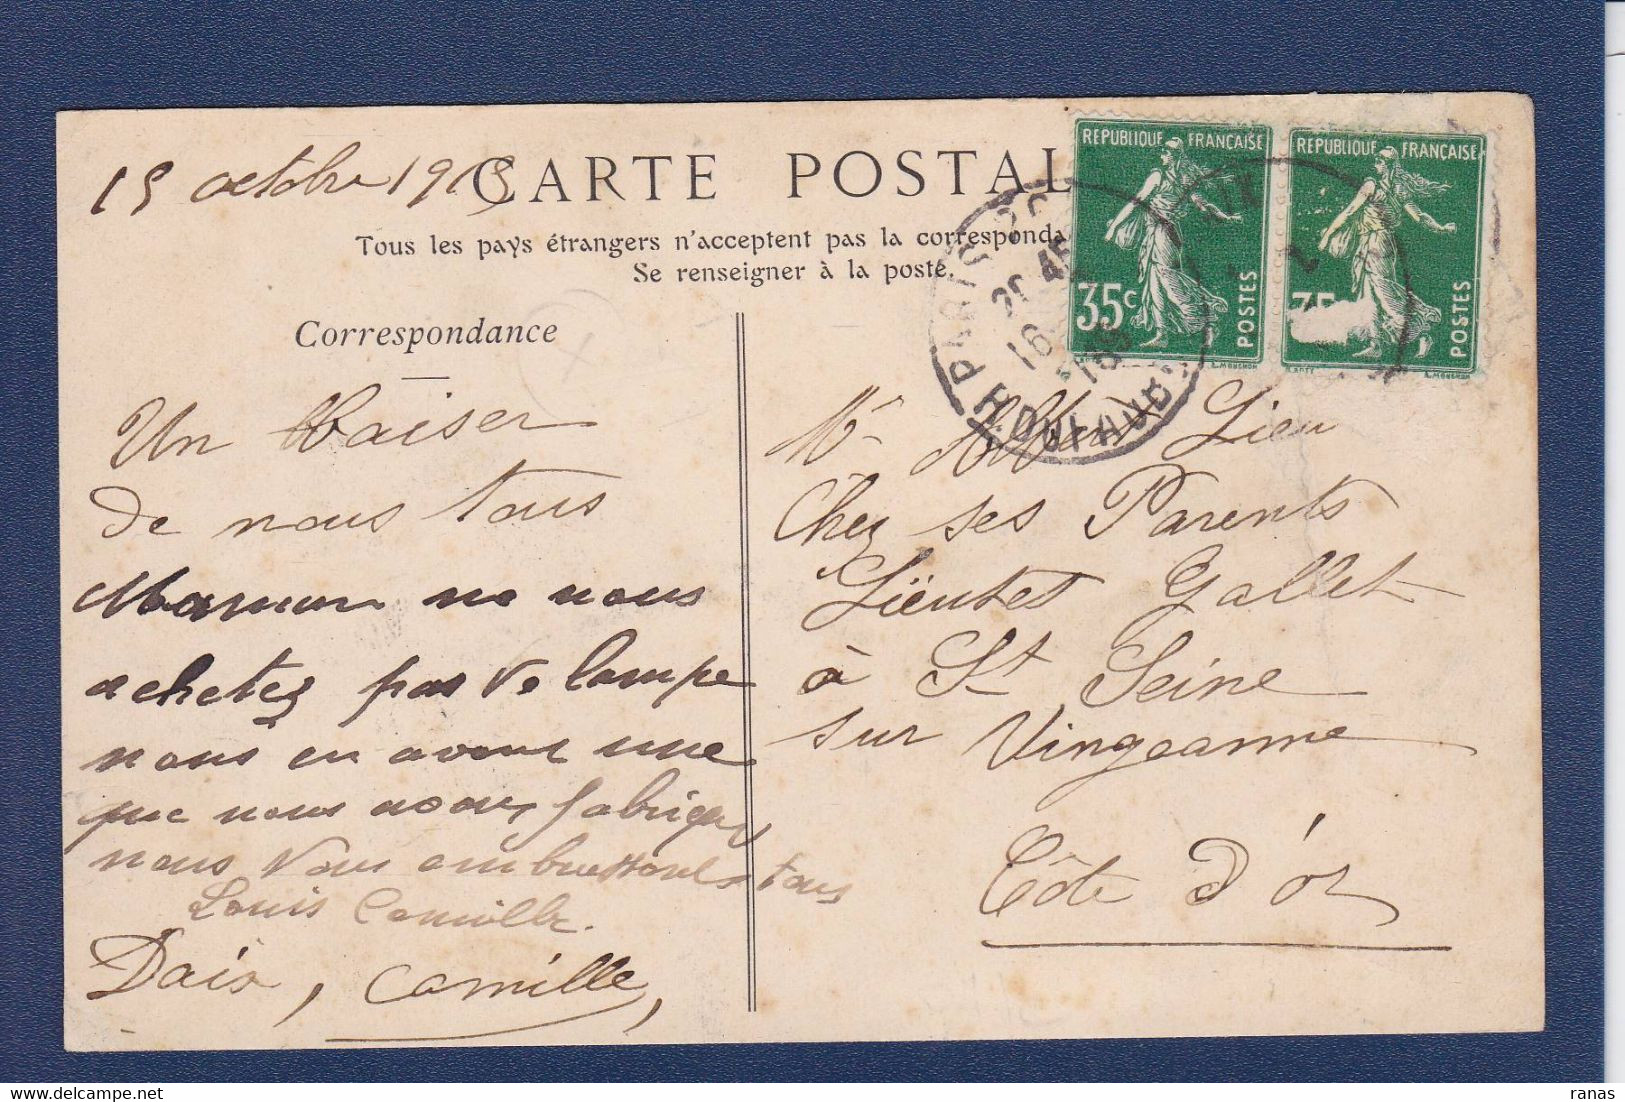 15 octobre 19
CARTE POSTAL
Tous les pays étrangers n'acceptent pas la corresponda
Se renseigner à la poste.
Correspondance
REPUBLIQUE FRANÇAISE
35c
POSTES
REPUBLIQUE FRANÇAISE
POSTES
PARIS
16
Un Baiser
de nous tous
Maman ne nous
achetez pas de lampe
nous en avons une
que nous avons fabriqué
nous vous embrassons tous
Louis Camille.
Daix, Camille,
Mr Albert Lieu
Chez ses Parents
Gallet
à St Seine
sur Vingeanne
Côte d'or
ranas